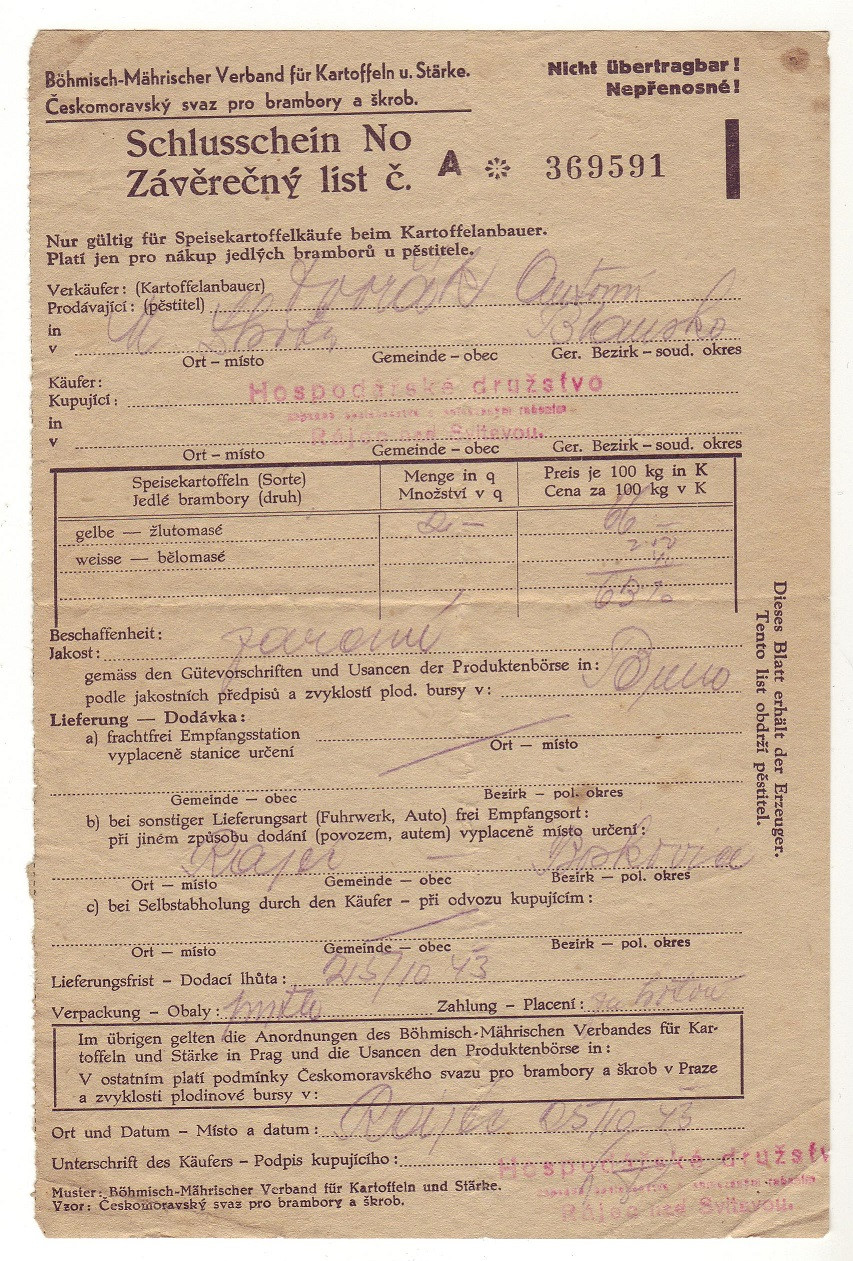 Böhmisch-Mährischer Verband für Kartoffeln u. Stärke.
Českomoravský svaz pro brambory a škrob.
Nicht übertragbar!
Nepřenosné!
Schlusschein No
Závěrečný list č. A 369591
Nur gültig für Speisekartoffelkäufe beim Kartoffelanbauer.
Platí jen pro nákup jedlých bramborů u pěstitele.
Verkäufer: (Kartoffelanbauer)
Prodávající: (pěstitel) Dvořák Antonín
in
v Blansko
Ort – místo Gemeinde – obec Ger. Bezirk – soud. okres
Käufer:
Kupující: Hospodářské družstvo
in
v Rájec nad Svitavou.
Ort – místo Gemeinde – obec Ger. Bezirk – soud. okres
Speisekartoffeln (Sorte) Menge in q Preis je 100 kg in K
Jedlé brambory (druh) Množství v q Cena za 100 kg v K
gelbe — žlutomasé 2.– 66
weisse — bělomasé
Beschaffenheit:
Jakost:
gemäss den Gütevorschriften und Usancen der Produktenbörse in:
podle jakostních předpisů a zvyklostí plod. bursy v:
Lieferung — Dodávka:
a) frachtfrei Empfangsstation
vyplaceně stanice určení
Ort – místo
Gemeinde – obec Bezirk – pol. okres
b) bei sonstiger Lieferungsart (Fuhrwerk, Auto) frei Empfangsort:
při jiném způsobu dodání (povozem, autem) vyplaceně místo určení:
Rájec – Boskovice
Ort – místo Gemeinde – obec Bezirk – pol. okres
c) bei Selbstabholung durch den Käufer – při odvozu kupujícím:
Ort – místo Gemeinde – obec Bezirk – pol. okres
Lieferungsfrist – Dodací lhůta: 25/10 43
Verpackung – Obaly: Zahlung – Placení: za hotové
Im übrigen gelten die Anordnungen des Böhmisch-Mährischen Verbandes für Kar-
toffeln und Stärke in Prag und die Usancen den Produktenbörse in:
V ostatním platí podmínky Českomoravského svazu pro brambory a škrob v Praze
a zvyklosti plodinové bursy v:
Ort und Datum – Místo a datum: 25/10 43
Unterschrift des Käufers – Podpis kupujícího: Hospodářské družstv
Rájec nad Svitavou.
Muster: Böhmisch-Mährischer Verband für Kartoffeln und Stärke.
Vzor: Českomoravský svaz pro brambory a škrob.
Dieses Blatt erhält der Erzeuger.
Tento list obdrží pěstitel.